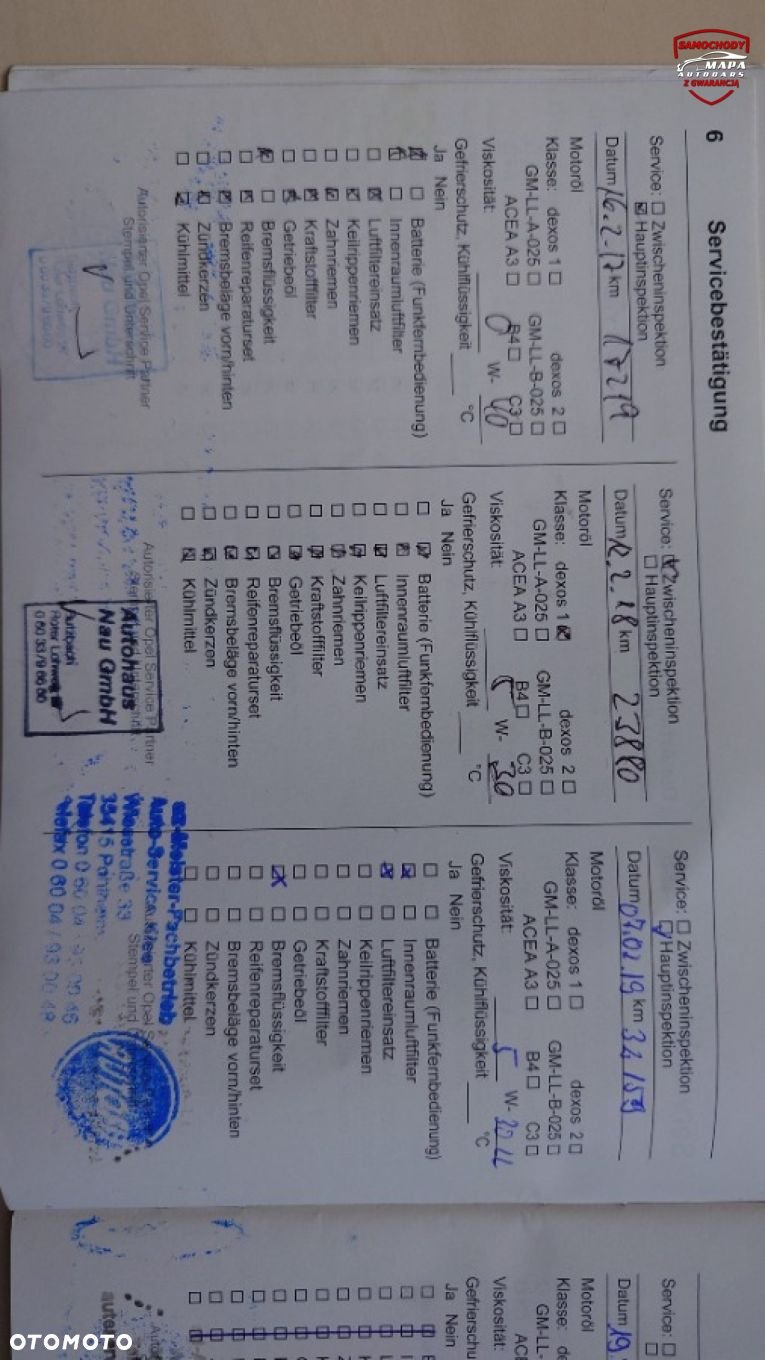 SAMOCHODY
MAPA
AUTODARS
Z GWARANCJĄ
6 Servicebestätigung
Service: Zwischeninspektion
Hauptinspektion
Datum 16.2.17 km 17219
Motoröl
Klasse: dexos 1 dexos 2
GM-LL-A-025 GM-LL-B-025
ACEA A3 B4 C3
Viskosität: 0 W- 40
Gefrierschutz, Kühlflüssigkeit °C
Ja Nein
Batterie (Funkfernbedienung)
Innenraumluftfilter
Luftfiltereinsatz
Keilrippenriemen
Zahnriemen
Kraftstofffilter
Getriebeöl
Bremsflüssigkeit
Reifenreparaturset
Bremsbeläge vorn/hinten
Zündkerzen
Kühlmittel
Autorisierter Opel Service Partner
Stempel und Unterschrift
Service: Zwischeninspektion
Hauptinspektion
Datum 12.2.18 km 23880
Motoröl
Klasse: dexos 1 dexos 2
GM-LL-A-025 GM-LL-B-025
ACEA A3 B4 C3
Viskosität: 5 W- 30
Gefrierschutz, Kühlflüssigkeit °C
Ja Nein
Batterie (Funkfernbedienung)
Innenraumluftfilter
Luftfiltereinsatz
Keilrippenriemen
Zahnriemen
Kraftstofffilter
Getriebeöl
Bremsflüssigkeit
Reifenreparaturset
Bremsbeläge vorn/hinten
Zündkerzen
Kühlmittel
Autorisierter Opel Service Partner
Autohaus
Nau GmbH
Butzbach
Roter Lohweg
0 60 33 / 9 66 60
Service: Zwischeninspektion
Hauptinspektion
Datum 07.02.19 km 34159
Motoröl
Klasse: dexos 1 dexos 2
GM-LL-A-025 GM-LL-B-025
ACEA A3 B4 C3
Viskosität: 5 W- 30 LL
Gefrierschutz, Kühlflüssigkeit °C
Ja Nein
Batterie (Funkfernbedienung)
Innenraumluftfilter
Luftfiltereinsatz
Keilrippenriemen
Zahnriemen
Kraftstofffilter
Getriebeöl
Bremsflüssigkeit
Reifenreparaturset
Bremsbeläge vorn/hinten
Zündkerzen
Kühlmittel
Stempel und
Meister-Fachbetrieb
Auto-Service
Wiesstraße 33
35415 Pohlheim
Telefon 0 60 04
Telefax 0 60 04 / 93 00 48
Service:
Datum 19
Motoröl
Klasse:
GM-LL-
Viskosität:
Gefrierschu
Ja Nein
OTOMOTO